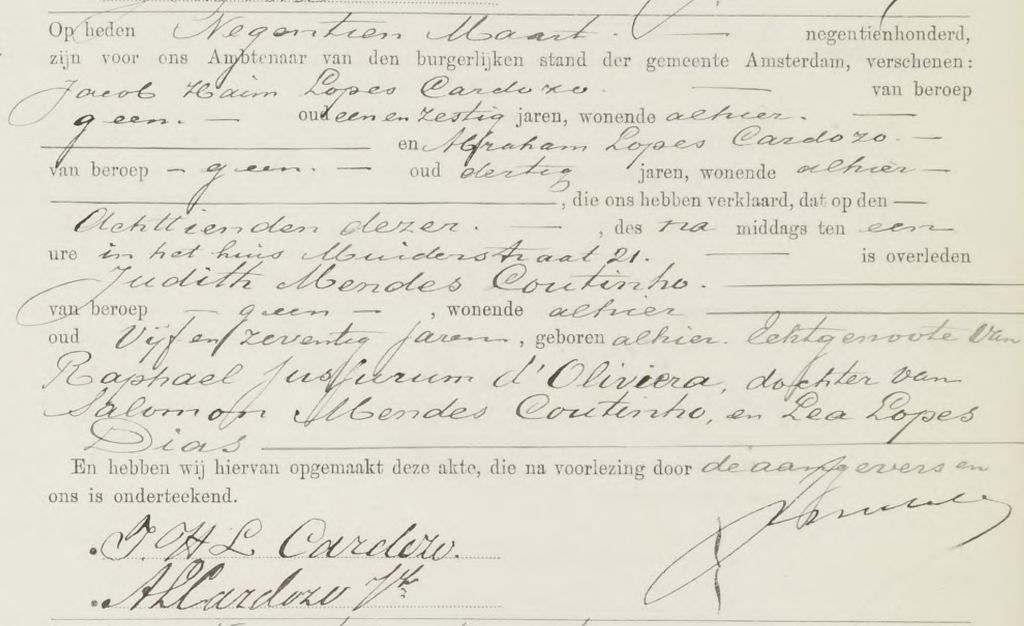 Op heden Negentien Maart. — negentienhonderd,
zijn voor ons Ambtenaar van den burgerlijken stand der gemeente Amsterdam, verschenen:
Jacob Haim Lopes Cardozo. — van beroep
geen. — oud een en zestig jaren, wonende alhier. —
— en Abraham Lopes Cardozo. —
van beroep — geen. — oud dertig jaren, wonende alhier —
—, die ons hebben verklaard, dat op den —
Achttienden dezer. —, des na middags ten een
ure in het huis Muiderstraat 21. — is overleden
Judith Mendes Coutinho. —
van beroep — geen —, wonende alhier —
oud Vijf en zeventig jaren, geboren alhier. Echtgenoote van
Raphael Jusjurum d'Oliviera, dochter van
Salomon Mendes Coutinho, en Lea Lopes
Dias —
En hebben wij hiervan opgemaakt deze akte, die na voorlezing door de aangevers en
ons is onderteekend.
J. H L Cardozo.
A L Cardozo